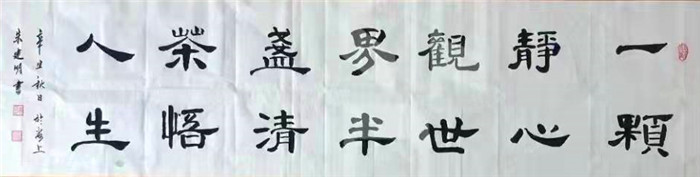 一顆
靜心
觀世
界半
盞清
茶悟
人生
辛丑秋日於上
朱建明書